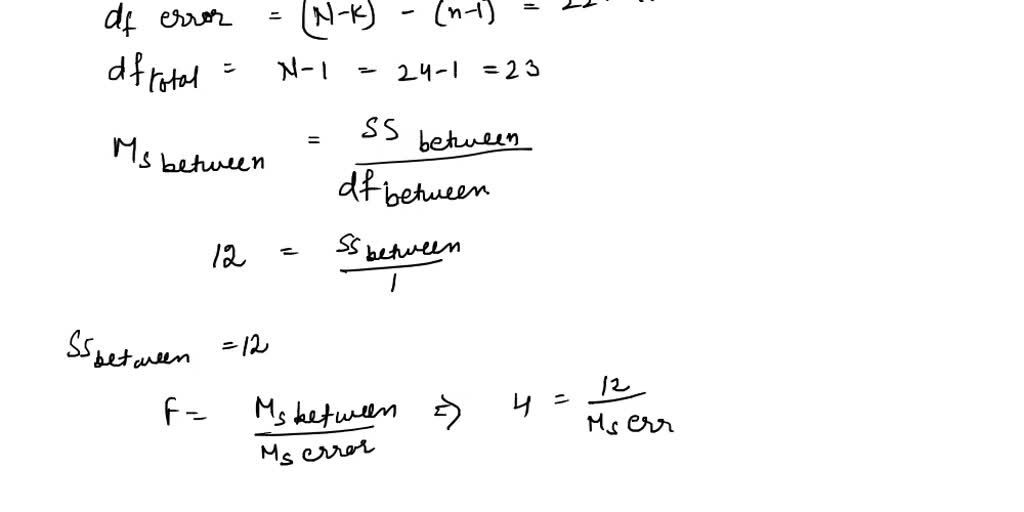 df error = (N-K) - (n-1) = 22-
df total = N-1 = 24-1 = 23
Ms between = SS between / df between
12 = SS between / 1
SS between = 12
F = Ms between / Ms error ⇒ 4 = 12 / Ms err